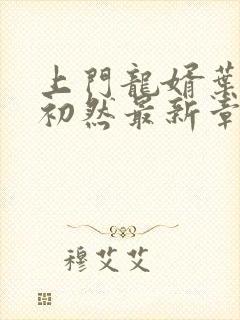 上門龍婿葉
初然最新章
穆艾艾